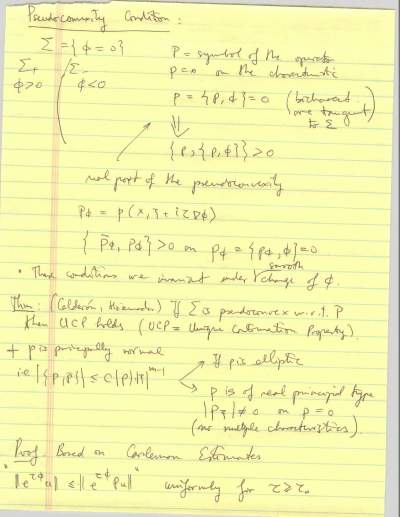 Pseudoconvexity Condition :
Σ = { φ = 0 }
p = symbol of the operator
p = 0 on the characteristic
Σ+ Σ-
φ>0 φ<0
p = {p, φ} = 0 (bicharact. are tangent to Σ)
⇓
{p, {p, φ}} > 0
real part of the pseudoconvexity
pφ = p(x, ξ + iτ∇φ)
{ p̄φ, pφ } > 0 on pφ = {pφ, φ} = 0
• These conditions are invariant under smooth change of φ.
Thm: (Calderón, Hörmander) If Σ is pseudoconvex w.r.t. P
then UCP holds (UCP = Unique Continuation Property).
+ p is principally normal
i.e. |{p, p̄}| ≤ C|p||ξ|^{m-1}
If p is elliptic
p is of real principal type
|pξ| ≠ 0 on p = 0
(no multiple characteristics)
Proof. Based on Carleman Estimates
"‖e^{τφ}u‖ ≤ ‖e^{τφ}Pu‖" uniformly for τ ≥ τ₀